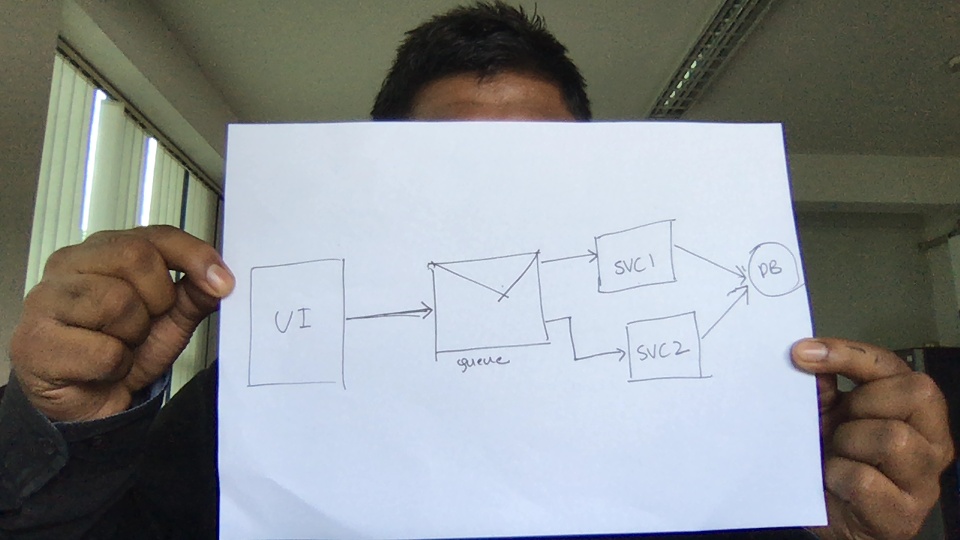 UI
queue
SVC1
SVC2
DB